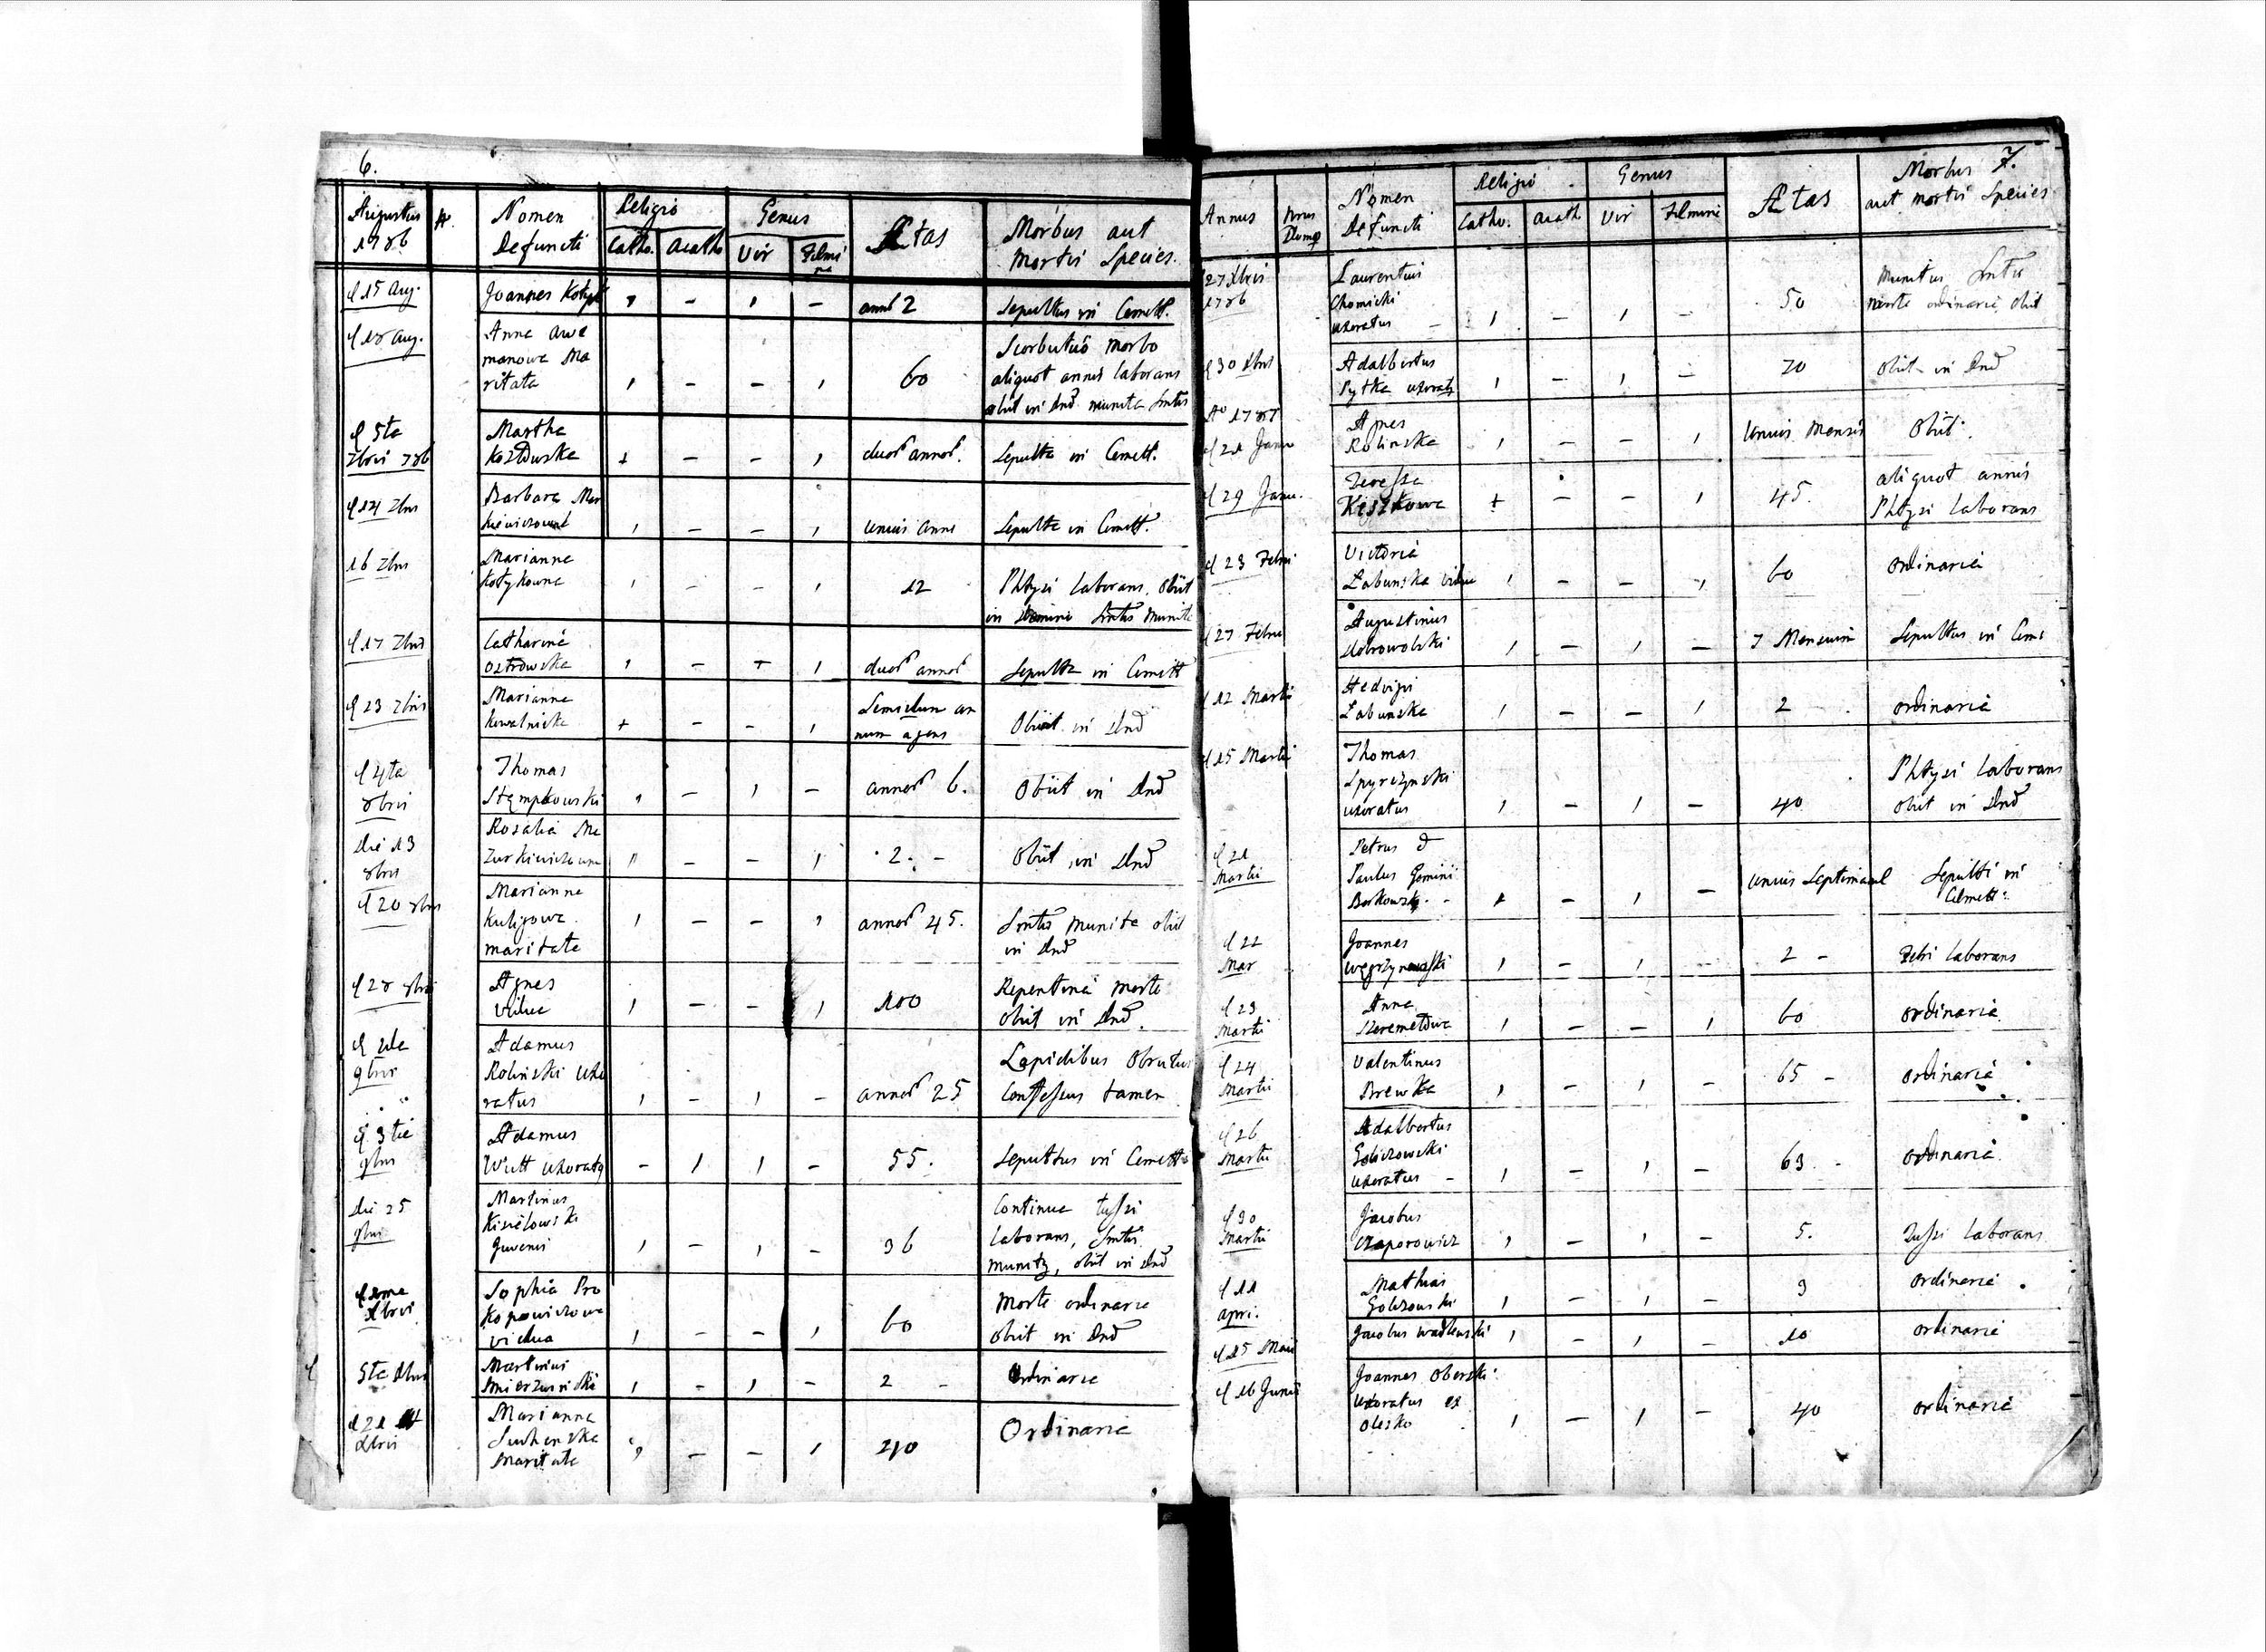 6.
Augustus 1786 N. Nomen Defuncti Religio Catho. Acatho Genus Vir Fæmi næ Ætas Morbus aut Mortis Species.
d 15 Aug. Joannes , - , - 2 Sepultus in Cemett.
d 18 Aug. Anna
manowa Ma
ritata , - - , 60 Scorbutico morbo
aliquot annis laborans
obiit in Dno munita Sntis
d 5ta
7bris 786 Martha
+ - - , duor annor. Sepulta in Cemett.
d 14 7bris Barbara Mar
, - - , unius anni Sepulta in Cemett.
16 7bris Marianna
Kotykowna , - - , 12 Phtysi laborans, obiit
in Domino Sntis munita
d 17 7bris Catharina
Ostrowska , - + , duor annor Sepulta in Cemett
d 23 7bris Marianna
Kowalnicka + - - , Semidum an
num agens Obiit in Dno
d 4ta
8bris Thomas
Stempkowski , - , - annor 6. Obiit in Dno
Die 13
8bris Rosalia Ma
, - - , 2. - Obiit in Dno
d 20 8bris Marianna
Kuligowa
maritata , - - , annor 45. Sntis munita obiit
in Dno
d 28 8bris Agnes
vidua , - - , 100 Repentina morte
obiit in Dno.
d 2da
9bris Adamus
Rolinski Uxo
ratus , - , - annor 25 Lapidibus Obrutus
Confessus tamen
d 3tia
9bris Adamus
Witt uxoratq - , , - 55. Sepultus in Cemett
Die 25
9bris Martinus
Kisielowski
Juvenis , - , - 36 Continua tussi
laborans, Sntis
munitq, obiit in Dno
Xbris Sophia Pro
kopowiczowa
vidua , - - , 60 Morte ordinaria
obiit in Dno
5ta Xbris Martinus
, - , - 2 - Ordinaria
d 21
Xbris Marianna
Suchenska
Maritata , - - , 40 Ordinaria
7.
Annus Nrus Domq Nomen Defuncti Religio Catho. Acath Genus Vir Fæmini Ætas Morbus aut mortis Species
27 Xbris
1786 Laurentius
Chomicki
uxoratus - , - , - 50 Munitus Sntis
morte ordinaria obiit
d 30 Xbris Adalbertus
Pytka uxorats , - , - 70 Obiit in Dno
Ao 1787
d 21 Janu Agnes
Rolinska , - - , Unius Mensis Obiit.
d 29 Janu. Teressa
Kiszkowa + - - , 45. aliquot annis
Phtysi laborans
d 23 Febru Victoria
Labunska vidua , - - , 60 Ordinaria
d 27 Febru Augustinus
Dobrowolski , - , - 7 Mensium Sepultus in Ceme
d 12 Martii Hedvigis
Labunska , - - , 2 Ordinaria
d 15 Martii Thomas
Spyrczynski
uxoratus , - , - 40 Phtysi laborans
obiit in Dno
d 21
Martii Petrus &
Paulus Gemini
Borkowski - , - , - Unius Septimanæ Sepulti in
Cemett:
d 22
Mar Joannes
, - , - 2 - Febri laborans
d 23
Martii Anna
Szeremetowa , - - , 60 Ordinaria
d 24
Martii Valentinus
Brewka , - , - 65 - Ordinaria
d 26
Martii Adalbertus
Golczowski
uxoratus - , - , - 63 - Ordinaria.
d 30
Martii Jacobus
Czaporowicz , - , - 5. Tussi laborans
d 11
Apri. Mathias
Golczowski , - , - 3 Ordinaria
d 15 Maii Jacobus , - , - 10 Ordinaria
d 16 Junii Joannes Oberski
Uxoratus ex
Olesko , - , - 40 Ordinaria